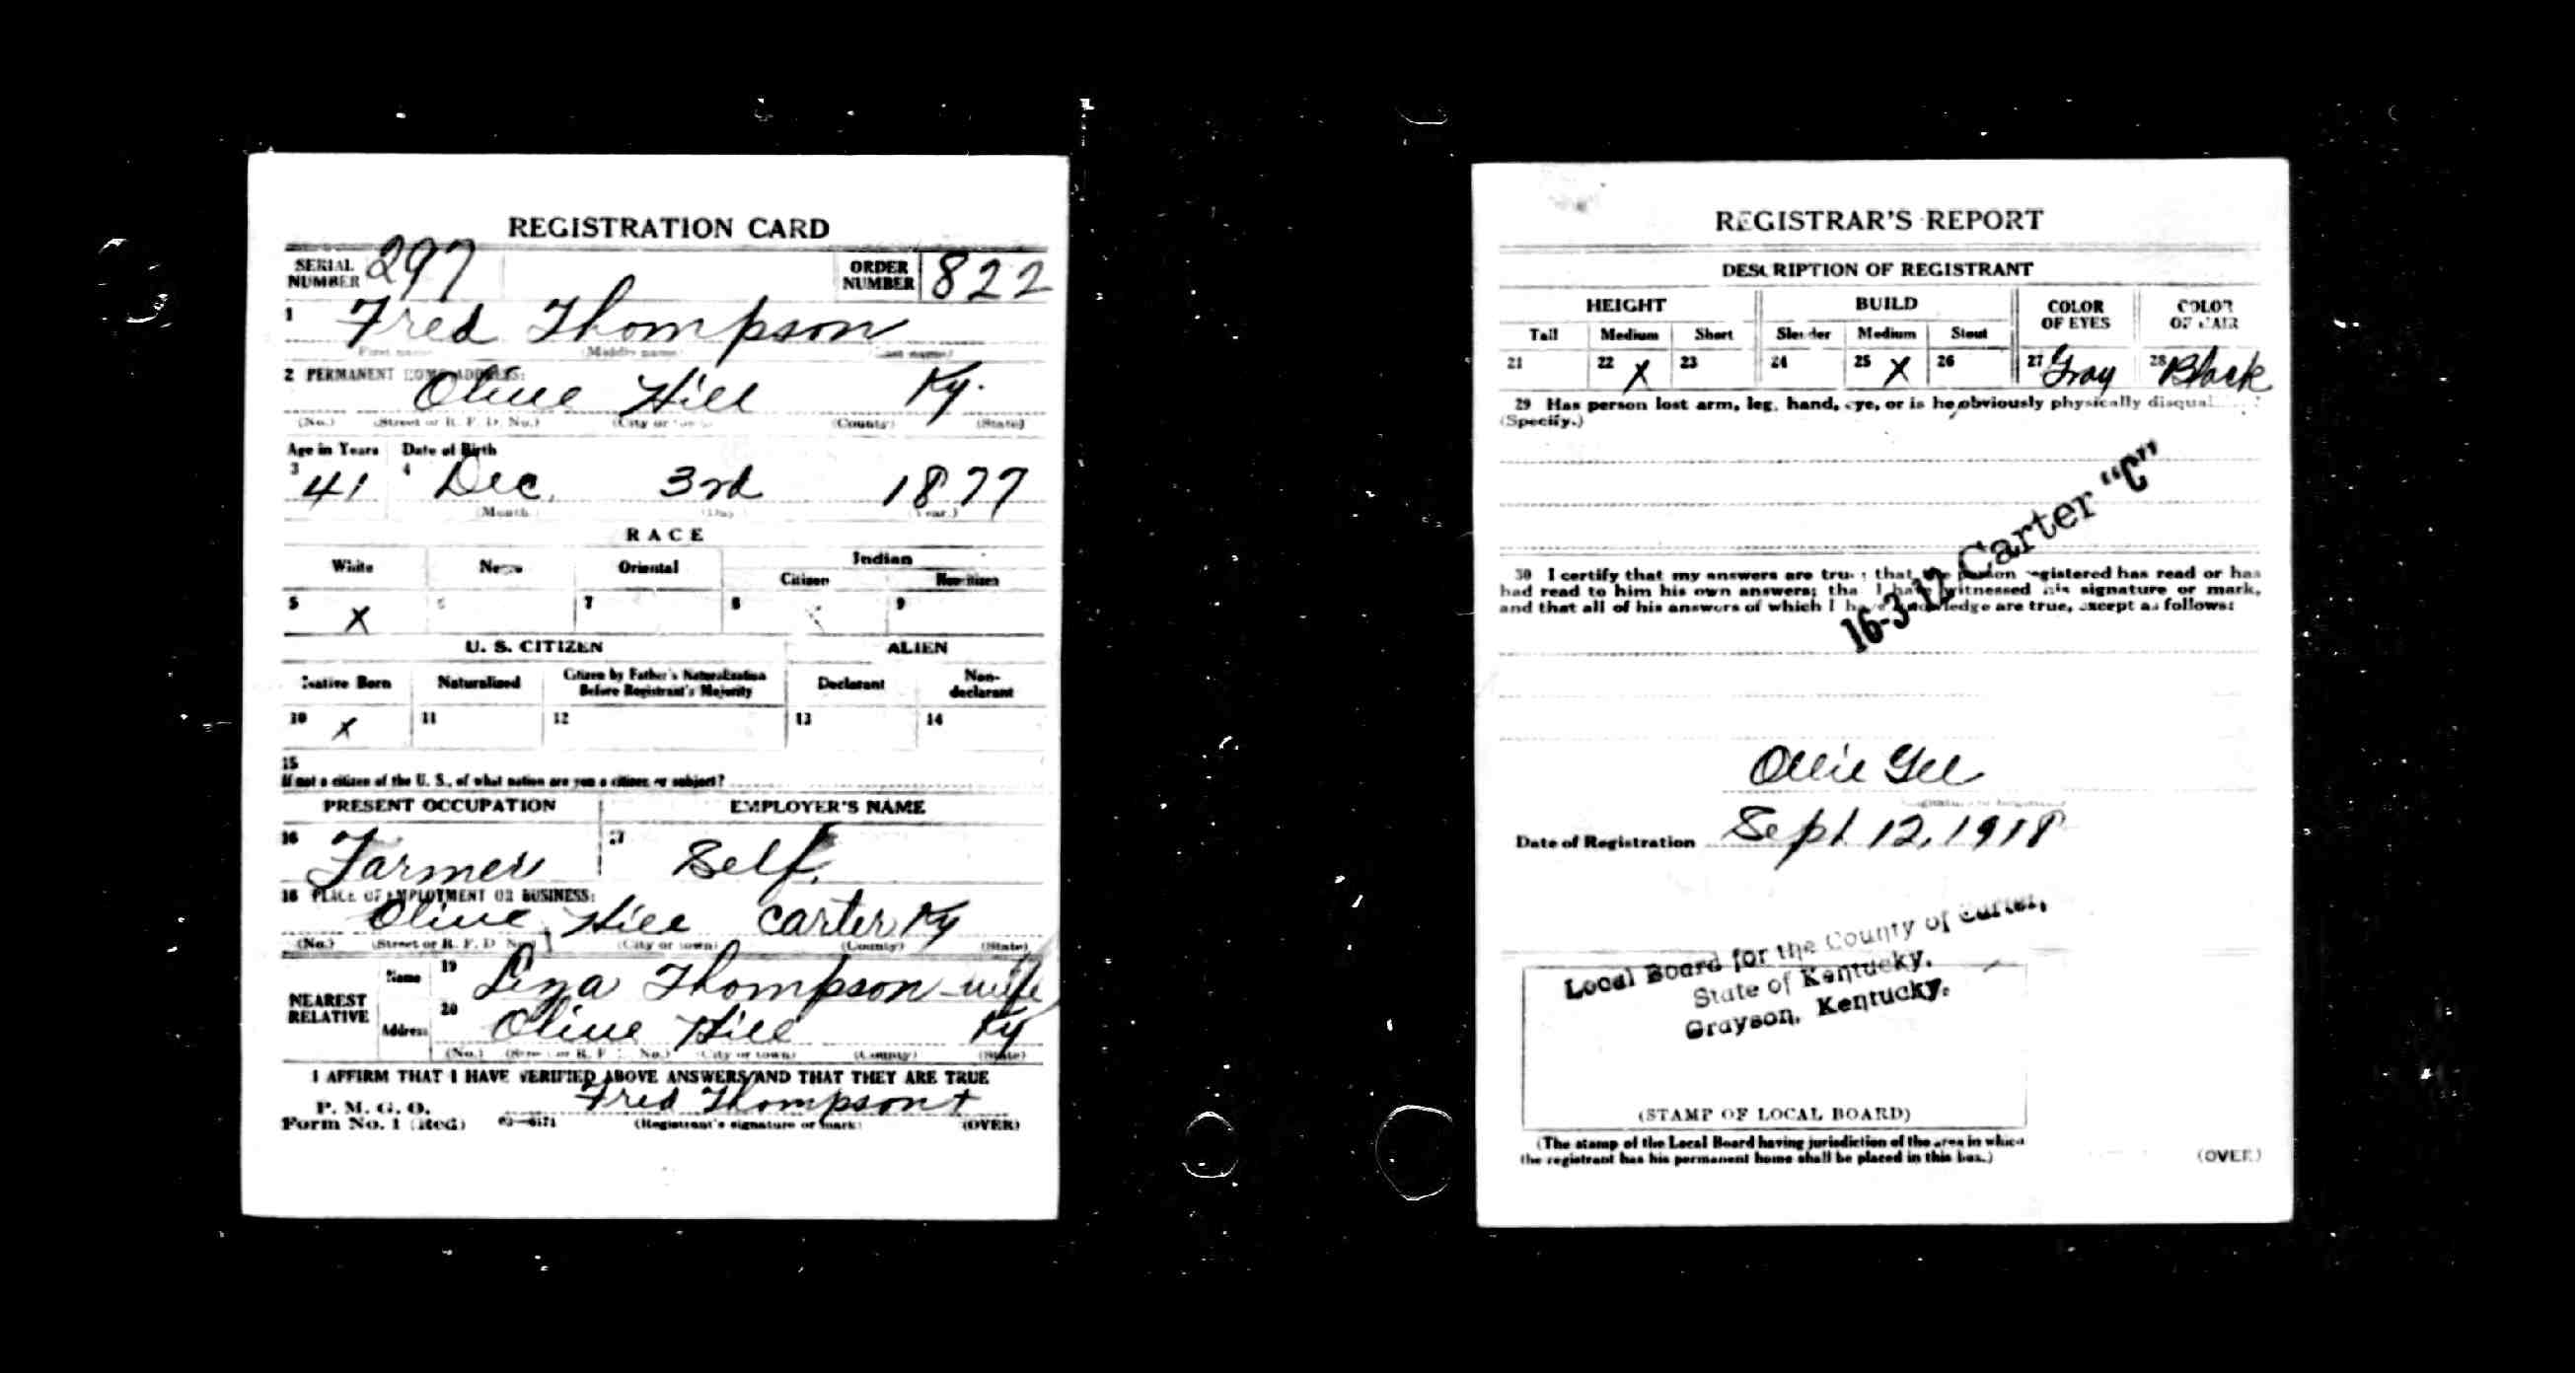 REGISTRATION CARD
SERIAL NUMBER 297 ORDER NUMBER 822
1 Fred Thompson
(First name) (Middle name) (Last name)
2 PERMANENT HOME ADDRESS:
Olive Hill Ky.
(No.) (Street or R. F. D. No.) (City or town) (County) (State)
Age in Years Date of Birth
3 41 4 Dec. 3rd 1877
(Month) (Day) (Year.)
RACE
White Negro Oriental Indian
Citizen Noncitizen
5 X 6 7 8 9
U. S. CITIZEN ALIEN
Native Born Naturalized Citizen by Father's Naturalization Before Registrant's Majority Declarant Non-declarant
10 X 11 12 13 14
15
If not a citizen of the U. S., of what nation are you a citizen or subject?
PRESENT OCCUPATION EMPLOYER'S NAME
16 Farmer 17 Self.
18 PLACE OF EMPLOYMENT OR BUSINESS:
Olive Hill Carter Ky
(No.) (Street or R. F. D. No.) (City or town) (County) (State)
NEAREST RELATIVE
Name 19 Liza Thompson - wife
Address 20 Olive Hill Ky
(No.) (Street or R. F. D. No.) (City or town) (County) (State)
I AFFIRM THAT I HAVE VERIFIED ABOVE ANSWERS AND THAT THEY ARE TRUE
P. M. G. O.
Form No. 1 (Red) Fred Thompson +
(Registrant's signature or mark) (OVER)
REGISTRAR'S REPORT
DESCRIPTION OF REGISTRANT
HEIGHT BUILD COLOR OF EYES COLOR OF HAIR
Tall Medium Short Slender Medium Stout
21 22 X 23 24 25 X 26 27 Gray 28 Black
29 Has person lost arm, leg, hand, eye, or is he obviously physically
(Specify.)
16-3-12 Carter "C"
30 I certify that my answers are true; that the person registered has read or has
had read to him his own answers; that I have witnessed his signature or mark,
and that all of his answers of which I have knowledge are true, except as follows:
Ollie Gee
(Signature of Registrar)
Date of Registration Sept 12, 1918
Local Board for the County of Carter,
State of Kentucky.
Grayson, Kentucky.
(STAMP OF LOCAL BOARD)
(The stamp of the Local Board having jurisdiction of the area in which
the registrant has his permanent home shall be placed in this box.)
(OVER)